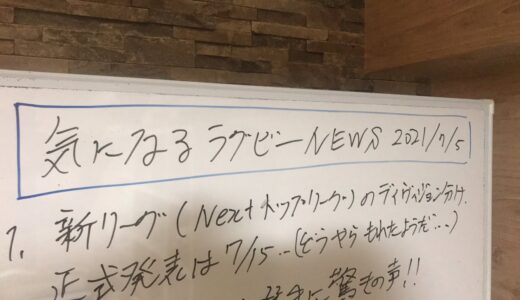 気になるラグビーNEWS 2021/7/5
1. 新リーグ(Nextトップリーグ)のディヴィジョン分け.
正式発表は7/15‥(どうやらもれたようだ…)
に驚きの声!!